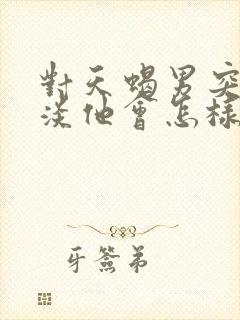 對天蝎男突
淡他會怎樣
牙籤弟